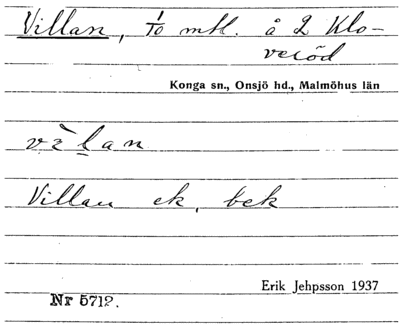 Villan, 1/10 mtl. å 2 Klo-
veröd
Konga sn., Onsjö hd., Malmöhus län
Villan ek. bek
Erik Jehpsson 1937
Nr 5712.